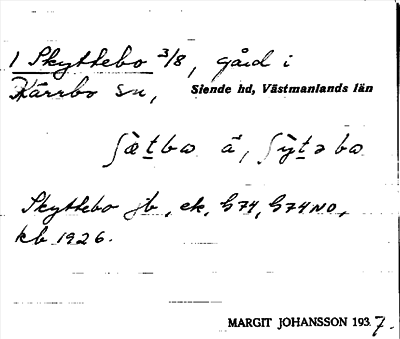 1 Skyttebo 3/8, gård i
Kärrbo sn, Siende hd, Västmanlands län
ʃæ̀t̠bω ä, ʃỳt̠ə bω
Skyttebo jb, ek, G74, G74NO,
kb 1926.
MARGIT JOHANSSON 1937.